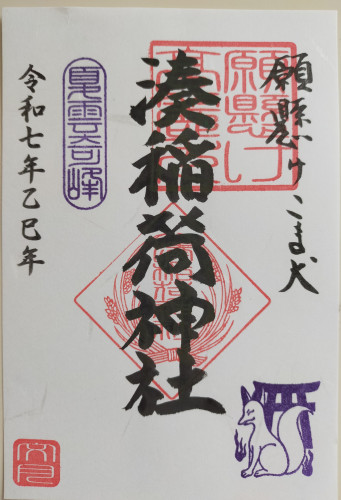 願懸けこま犬
湊稲荷神社
夏雲奇峰
令和七年乙巳年